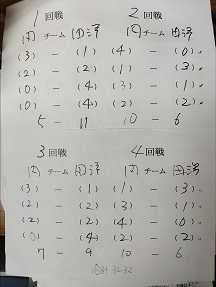 1回戦 2回戦
チーム チーム
(3) - (1) (4) - (0)
(2) - (2) (1) - (3)
(0) - (4) (3) - (1)
(0) - (4) (2) - (2)
5 - 11 10 - 6
3回戦 4回戦
チーム チーム
(3) - (1) (1) - (3)
(2) - (2) (3) - (1)
(2) - (2) (4) - (0)
(0) - (4) (2) - (2)
7 - 9 10 - 6
合計 32-32